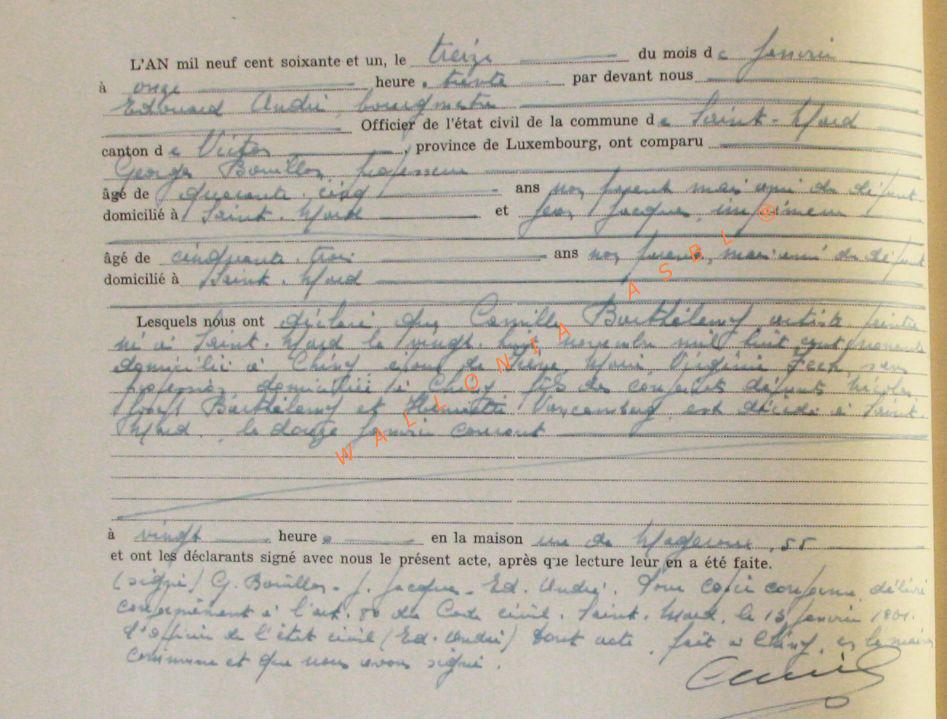 L'AN mil neuf cent soixante et un, le treize du mois de janvier
à onze heure s trente par devant nous
Edouard André, bourgmestre
Officier de l'état civil de la commune de Saint-Mard
canton de Virton, province de Luxembourg, ont comparu
Georges Bouillon professeur
âgé de quarante cinq ans non parent mais ami du défunt
domicilié à Saint-Mard et Jean Jacques, imprimeur
âgé de cinquante trois ans non parent, mais ami du défunt
domicilié à Saint-Mard
Lesquels nous ont déclaré que Camille Barthélemy artiste peintre
né à Saint-Mard le vingt-huit novembre mil huit cent nonante
domicilié à Chiny époux de Marie Virginie sans
profession domiciliée à Chiny, fils des conjoints défunts Nicolas
Joseph Barthélemy et Henriette est décédé à Saint-
Mard, le douze janvier courant
à vingt heure s en la maison rue de 55
et ont les déclarants signé avec nous le présent acte, après que lecture leur en a été faite.
(signé) G. Bouillon - J. Jacques - Ed. André. Pour copie conforme, délivré
conformément à l'art. 80 du Code civil. Saint-Mard, le 13 janvier 1961.
L'officier de l'état civil (Ed. André) Dont acte, fait à Chiny, en la maison
commune et que nous avons signé.
WALLONIA ASBL ©